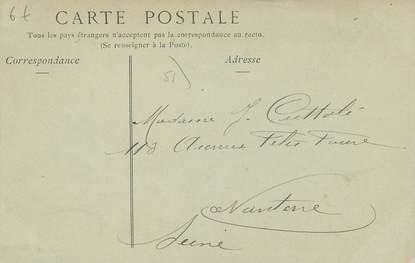 6t
CARTE POSTALE
Tous les pays étrangers n'acceptent pas la correspondance au recto.
(Se renseigner à la Poste).
Correspondance
Adresse
51
Madame J. Cuttoli
113 Avenue Félix Faure
Nanterre
Seine